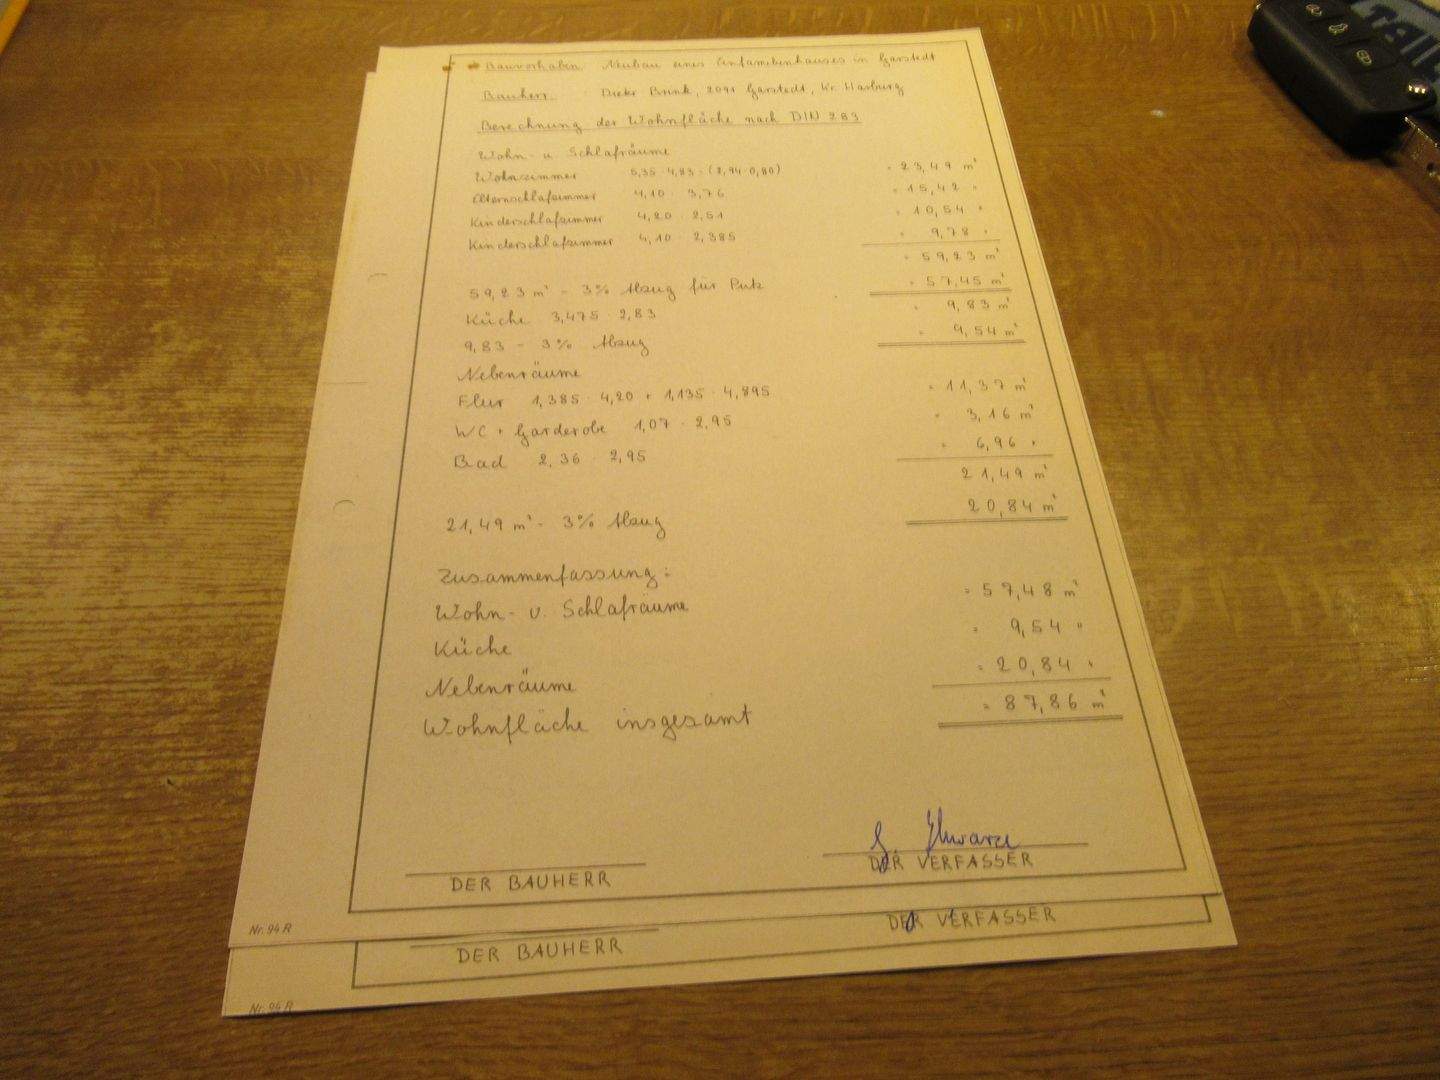 Bauvorhaben Neubau eines Einfamilienhauses in Garstedt
Bauherr: Dieter Brink, 2091 Garstedt, Kr. Harburg
Berechnung der Wohnfläche nach DIN 283
Wohn- u. Schlafräume
Wohnzimmer 5,35 · 4,83 - (2,94 · 0,80) = 23,49 m²
Elternschlafzimmer 4,10 · 3,76 = 15,42 "
Kinderschlafzimmer 4,20 · 2,51 = 10,54 "
Kinderschlafzimmer 4,10 · 2,385 = 9,78 "
= 59,23 m²
59,23 m² - 3% Abzug für Putz = 57,45 m²
Küche 3,475 · 2,83 = 9,83 m²
9,83 - 3% Abzug = 9,54 m²
Nebenräume
Flur 1,385 · 4,20 + 1,135 · 4,895 = 11,37 m²
WC + Garderobe 1,07 · 2,95 = 3,16 m²
Bad 2,36 · 2,95 = 6,96 "
21,49 m²
21,49 m² - 3% Abzug 20,84 m²
Zusammenfassung:
Wohn- u. Schlafräume = 57,48 m²
Küche = 9,54 "
Nebenräume = 20,84 "
Wohnfläche insgesamt = 87,86 m²
DER BAUHERR
DER VERFASSER
Nr. 94 R
DER BAUHERR
DER VERFASSER
Nr. 94 R